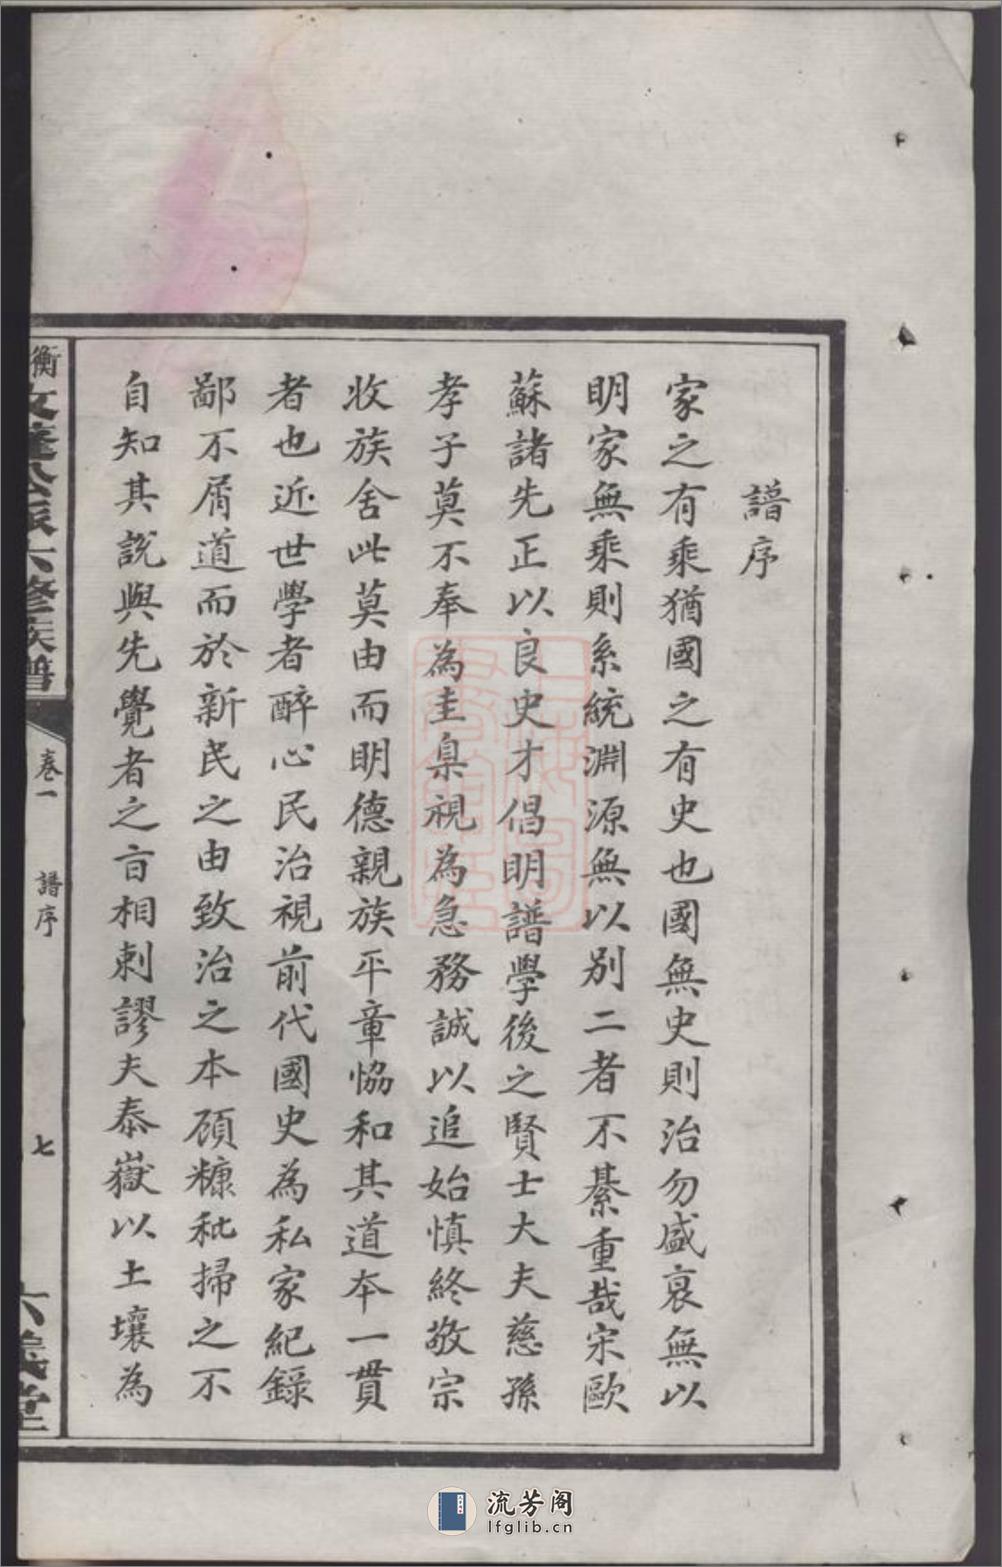 譜序
家之有乘猶國之有史也國無史則治勿盛衰無以
明家無乘則系統淵源無以別二者不綦重哉宋歐
蘇諸先正以良史才倡明譜學後之賢士大夫慈孫
孝子莫不奉為圭臬視為急務誠以追始慎終敬宗
收族舍此莫由而明德親族平章恊和其道本一貫
者也近世學者醉心民治視前代國史為私家紀錄
鄙不屑道而於新民之由致治之本頋糠秕掃之不
自知其說與先覺者之㫖相剌謬夫泰嶽以土壤為
衡
六修族譜
卷一
譜序
七
六義堂
流芳阁
lfglib.cn